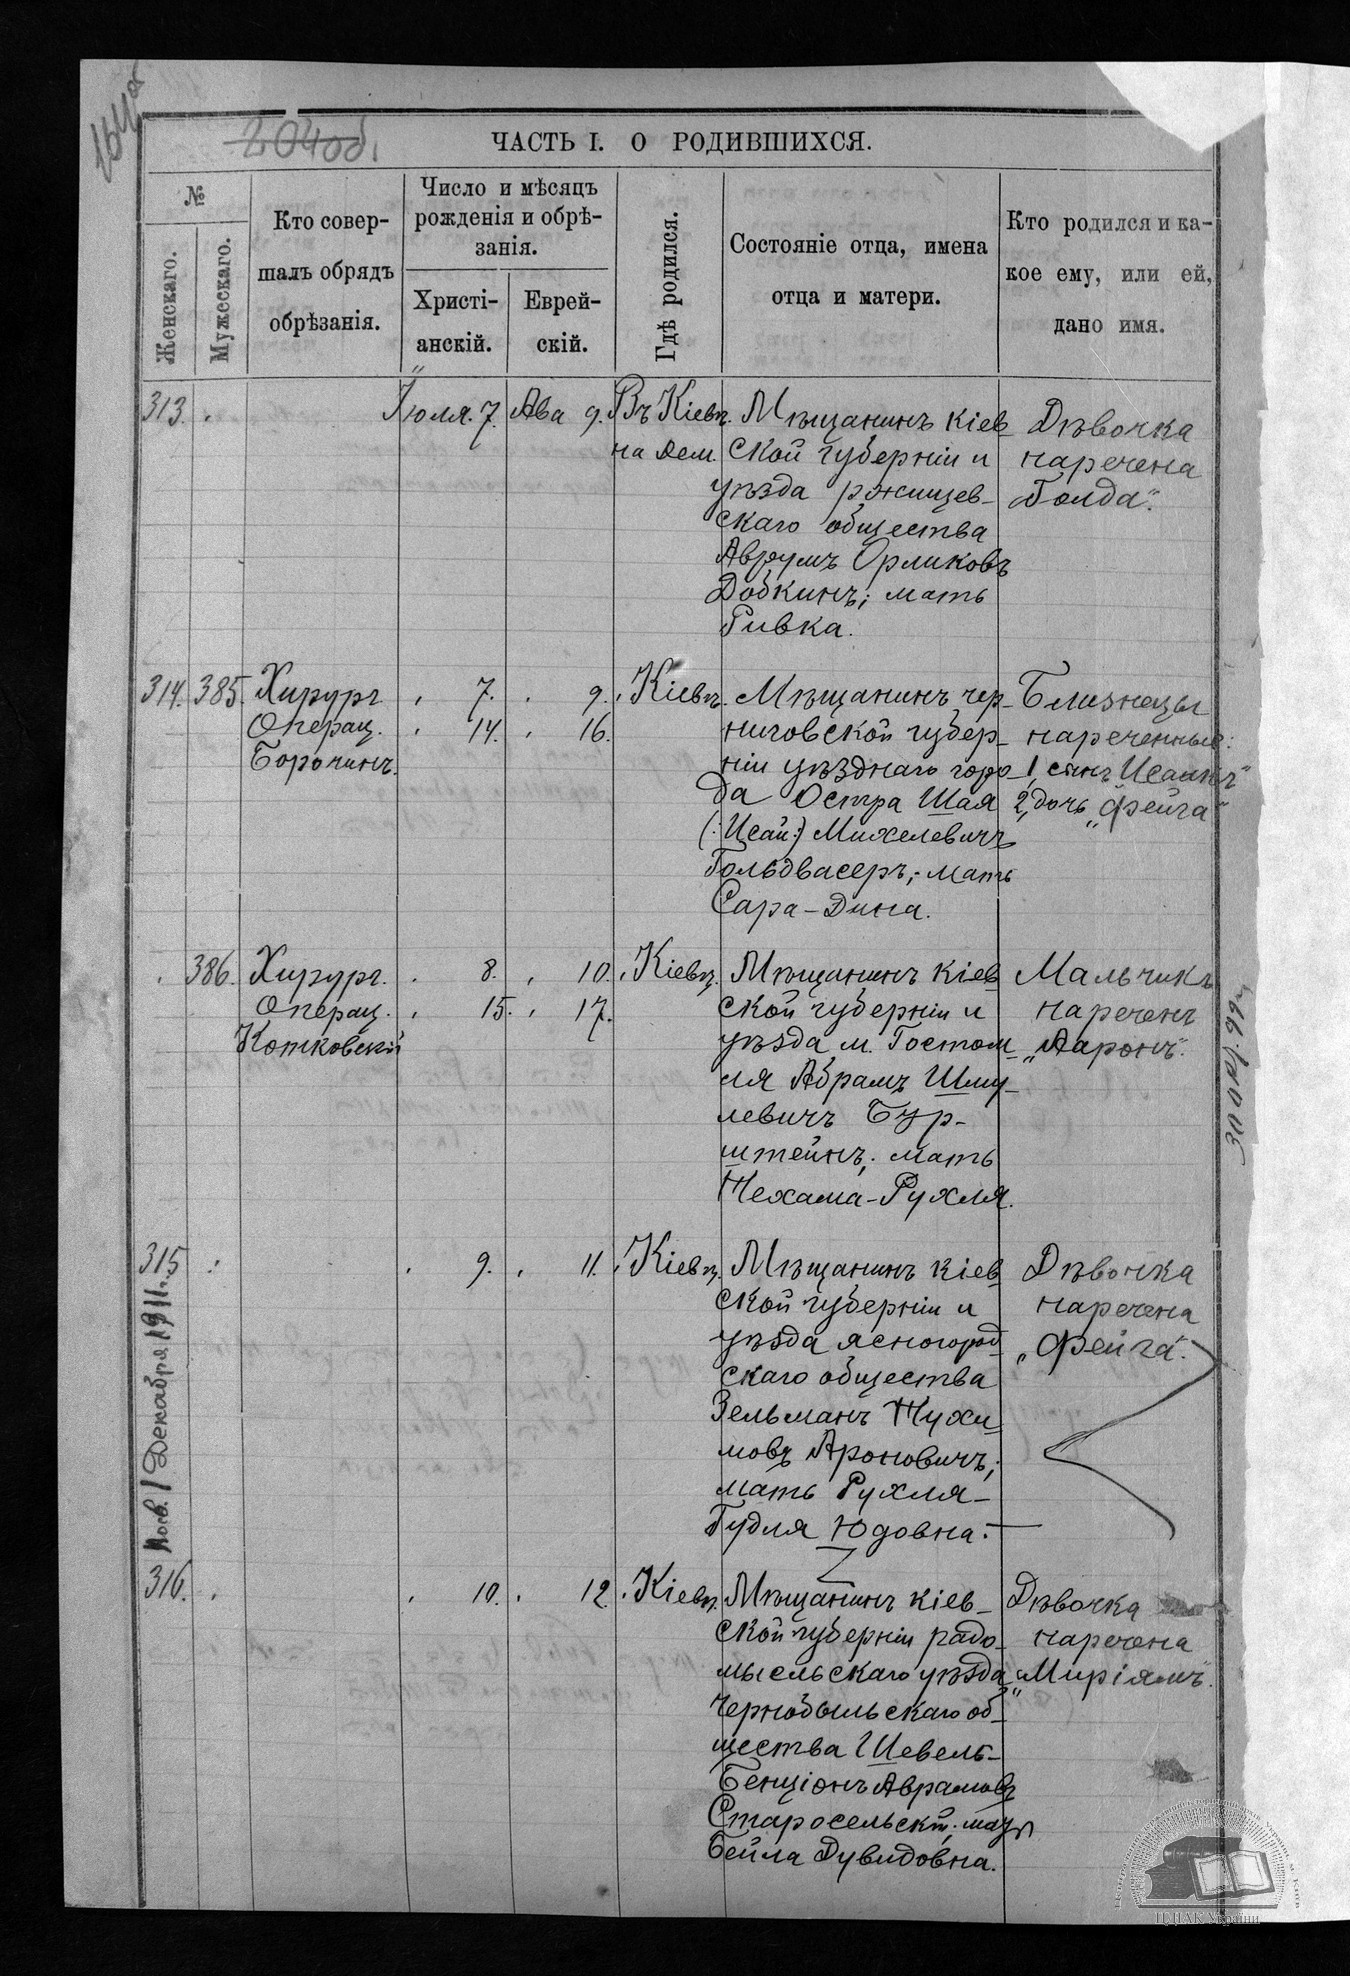 204об.
ЧАСТЬ I. О РОДИВШИХСЯ.
№
Женскаго.
Мужескаго.
Кто совер-
шалъ обрядъ
обрѣзанія.
Число и мѣсяцъ
рожденія и обрѣ-
занія.
Христі-
анскій.
Еврей-
скій.
Гдѣ родился.
Состояніе отца, имена
отца и матери.
Кто родился и ка-
кое ему, или ей,
дано имя.
313.
Іюля. 7.
Ава 9.
Въ Кіевѣ.
на Дем.
Мѣщанинъ кіев-
ской губерніи и
уѣзда ржищев-
скаго общества
Аврумъ Орликовъ
Добкинъ; мать
Ривка.
Дѣвочка
наречена
„Голда“.
314. 385.
Хирург
Операц.
Борочинъ.
7.
14.
9.
16.
Кіевѣ.
Мѣщанинъ чер-
ниговской губер-
ніи уѣзднаго горо-
да Остра Шая
(:Исай:) Михелевичъ
Гольдвасеръ; мать
Сара-Дина.
Близнецы
нареченные:
1, сынъ „Исаакъ“
2, дочь „Фейга“
386.
Хирург.
Операц.
Котковскій
8.
15.
10.
17.
Кіевѣ.
Мѣщанинъ кіев
ской губерніи и
уѣзда м. Гостом-
ля Абрамъ Шму-
левичъ Бур-
штейнъ; мать
Нехама-Рухля.
Мальчикъ
нареченъ
„Ааронъ“.
315
9.
11.
Кіевѣ.
Мѣщанинъ кіев
ской губерніи и
уѣзда ясногород
скаго общества
Зельманъ Нухи-
мовъ Ароновичъ;
мать Рухля-
Гудля Юдовна.
Дѣвочка
наречена
„Фейга“.
1 Декабря 1911 г.
316.
10.
12.
Кіевѣ.
Мѣщанинъ кіев-
ской губерніи радо-
мысльскаго уѣзда
чернобыльскаго об-
щества Шевель-
Бенціонъ Аврамовъ
Старосельскій; мать
Бейла Дувидовна.
Дѣвочка
наречена
„Миріямъ“.
ЦДІАК України